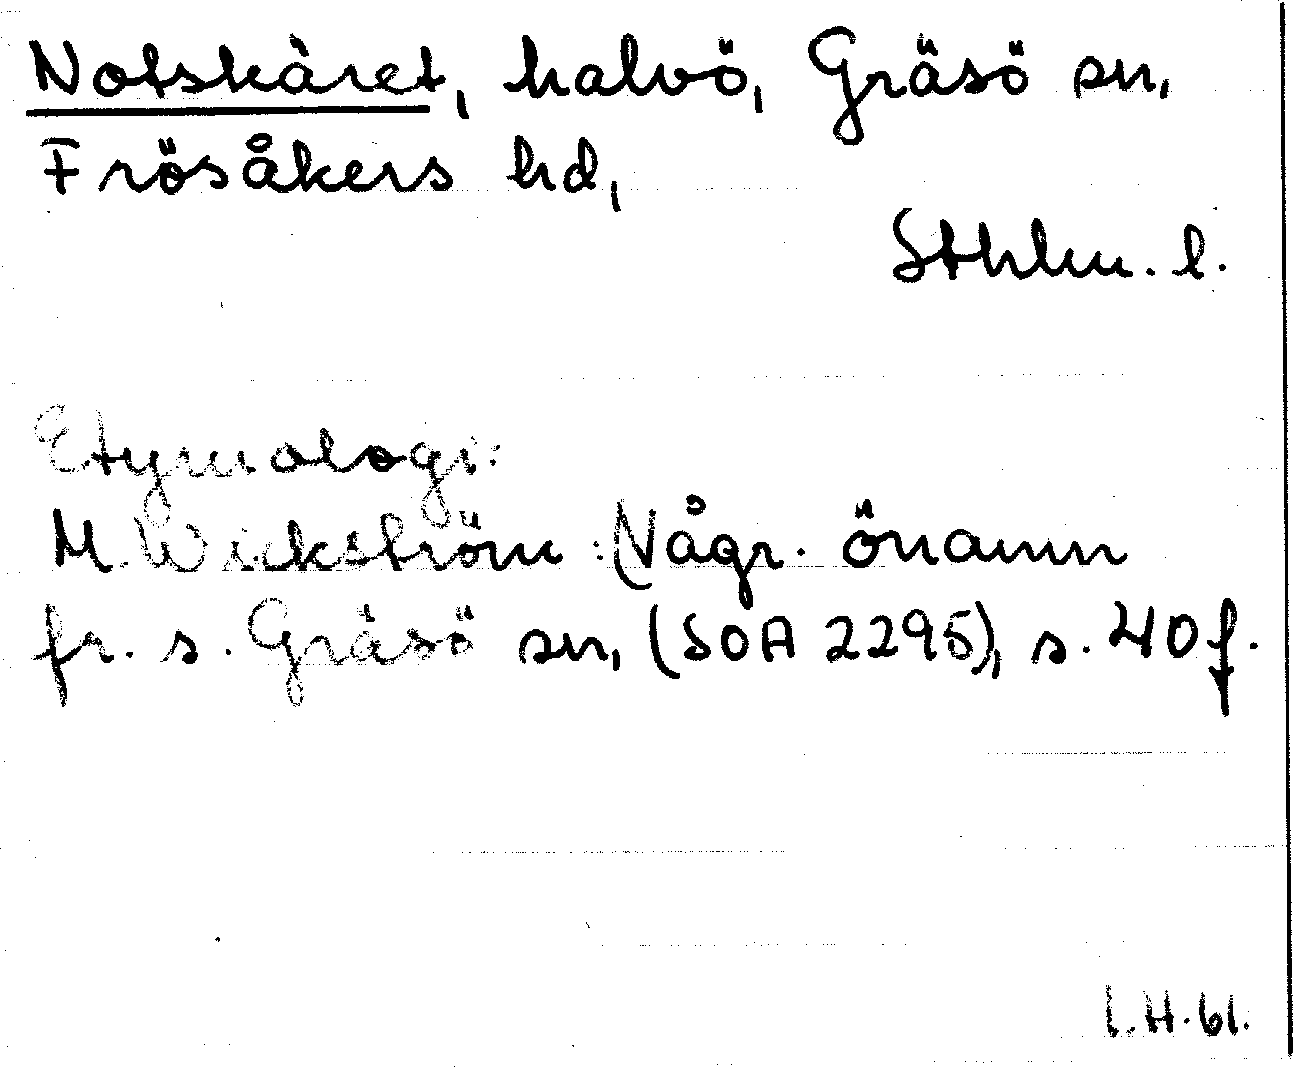 Notskäret, halvö, Gräsö sn,
Frösåkers hd,
Sthlm. l.
Etymologi:
M. Wickström: Några önamn
fr. s. Gräsö sn, (SOA 2295), s. 40 f.
I.H. 61.